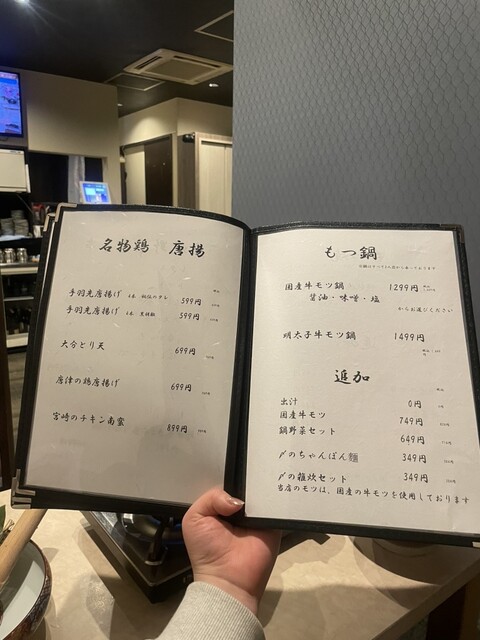 名物鶏 唐揚
手羽先唐揚げ 4本 秘伝のタレ 599円
手羽先唐揚げ 4本 黒胡椒 599円
大分とり天 699円
唐津の鶏唐揚げ 699円
宮崎のチキン南蛮 899円
もつ鍋
国産牛モツ鍋 1299円
醤油・味噌・塩
からお選びください
明太子牛モツ鍋 1499円
追加
出汁 0円
国産牛モツ 749円
鍋野菜セット 649円
〆のちゃんぽん麺 349円
〆の雑炊セット 349円
当店のモツは、国産の牛モツを使用しております